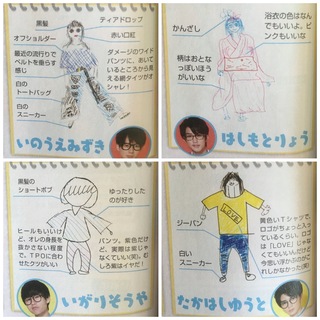 黒髪
オフショルダー
最近の流行りで
ベルトを垂らす
感じ
白の
トートバッグ
白の
スニーカー
ティアドロップ
赤い口紅
ダメージのワイド
パンツに、あいて
いるところから見
える網タイツがオ
シャレ！
いのうえみずき
かんざし
柄はおとな
っぽいほう
がいいな
浴衣の色はなん
でもいいよ。ピ
ンクもいいな
はしもとりょう
黒髪の
ショートボブ
ヒールもいいけ
ど、オレの身長を
抜かさない程度
で。TPOに合わ
せたクツがいい
ゆったりした
のが好き
パンツ。紫色だけ
ど、実際は紫じゃ
なくていい(笑)。む
しろ紫はイヤだ！
いがりそうや
ジーパン
白い
スニーカー
LOVE
黄色いTシャツで
ロゴがちょっと入
っているくらい。ロゴ
は「LOVE」じゃなく
てもいいんだけど
今思い浮かぶのがこ
れしかなかった(笑)
たかはしゆうと